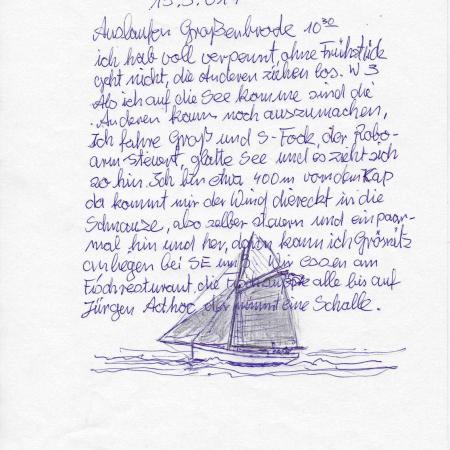 Auslaufen Großenbrode 10³⁰
ich hab voll verpennt, ohne Frühstück
geht nicht, die Anderen ziehen los. W 3
Als ich auf die See komme sind die
Anderen kaum noch auszumachen,
Ich fahre Groß und S-Fock, der Robo-
arm steuert, glatte See und es zieht sich
so hin. Ich bin etwa 400m vor dem Kap
da kommt mir der Wind diereckt in die
Schnauze, also selber steuern und ein paar-
mal hin und her, dann kann ich Grömitz
anliegen bei SE Wir essen am
Fischresturant, die alle bis auf
Jürgen Adhoc der nimmt eine Scholle.